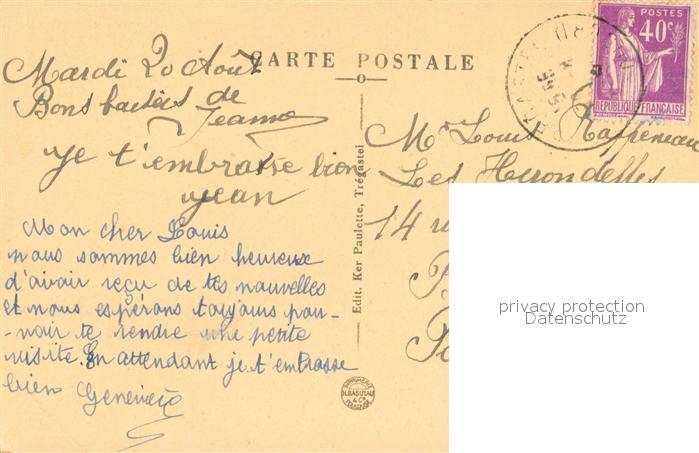 CARTE POSTALE
POSTES
40c
REPUBLIQUE FRANÇAISE
Mardi 20 Août
Bons baisers de
Jeanne
je t'embrasse bien
Jean
Mon cher Louis
nous sommes bien heureux
d'avoir reçu de tes nouvelles
et nous espérons toujours pou-
-voir te rendre une petite
visite. En attendant je t'embrasse
bien Geneviève
Edit. Ker Paulette, Trégastel
Mr Louis Rappeneau
Les Hirondelles
14
privacy protection
Datenschutz